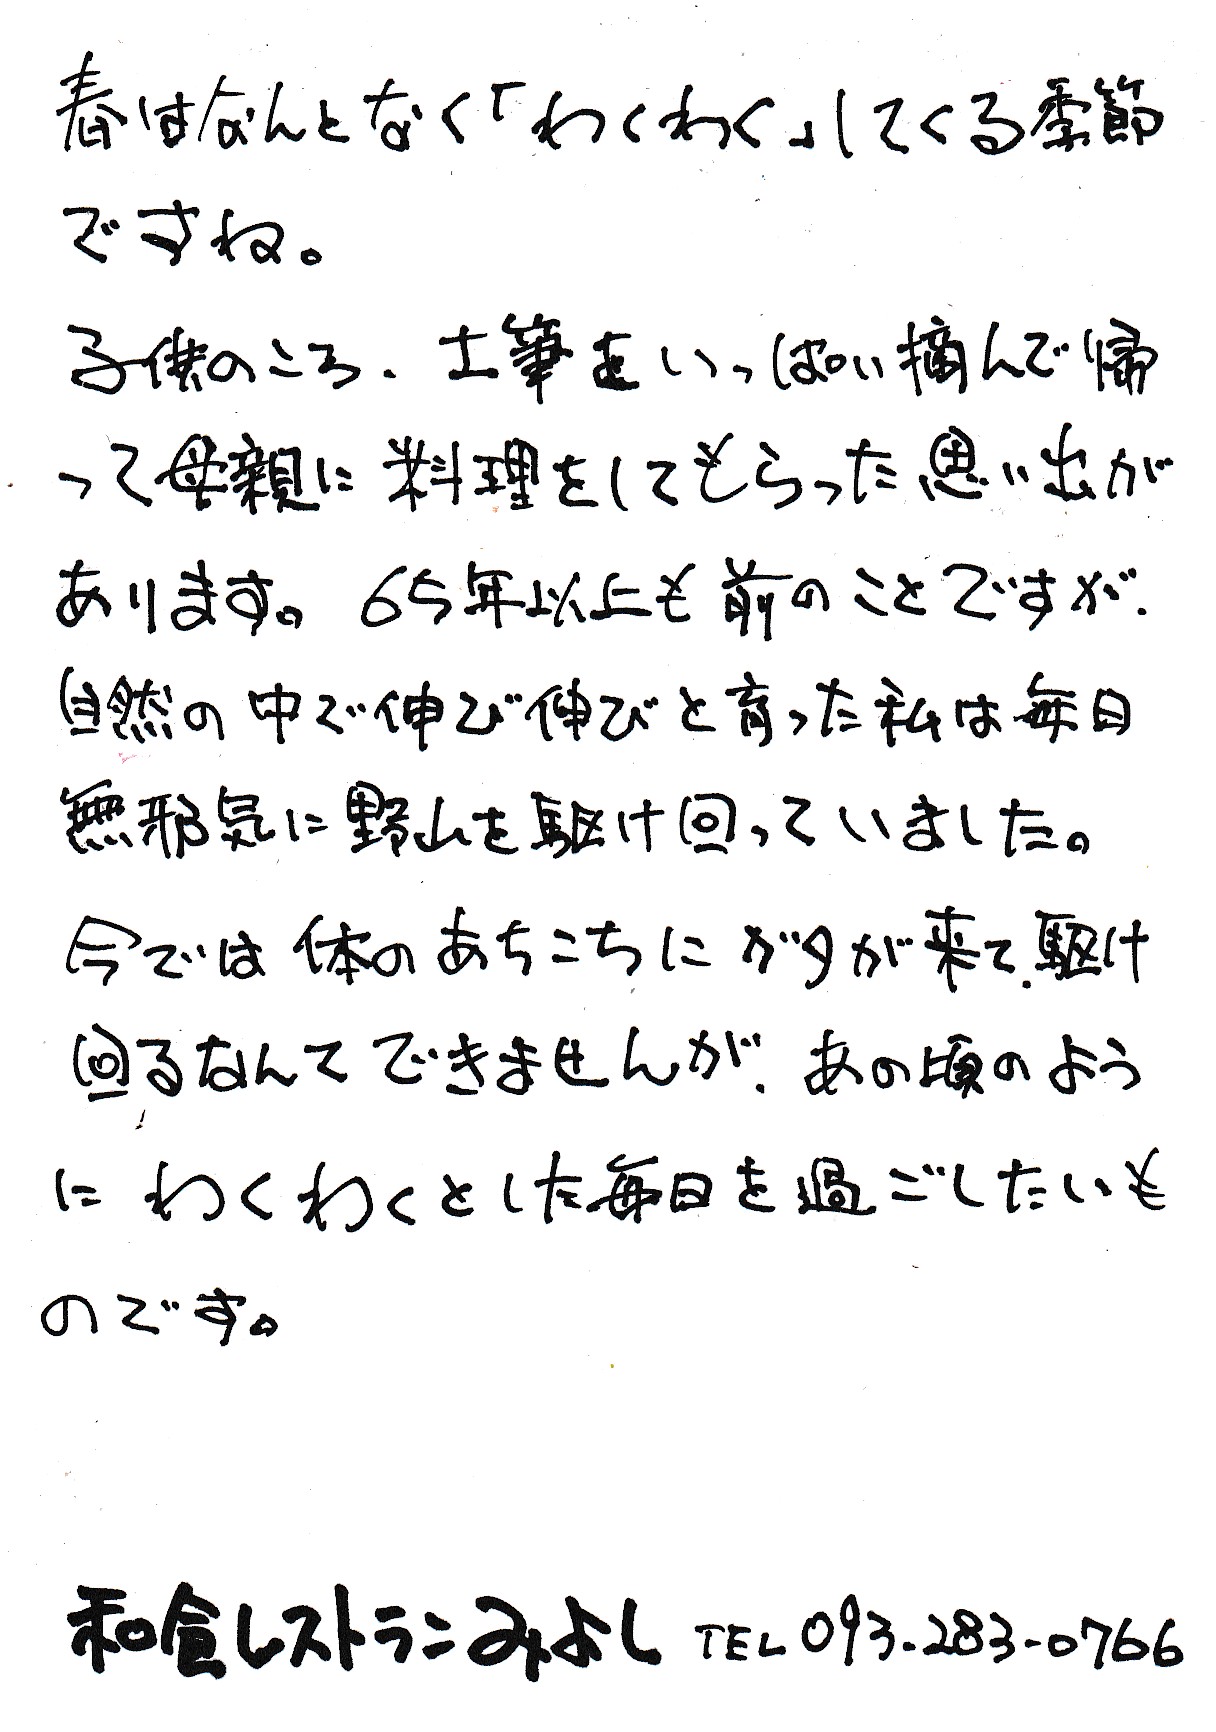 春はなんとなく「わくわく」してくる季節
ですね。
子供のころ、土筆をいっぱい摘んで帰
って母親に料理をしてもらった思い出が
あります。65年以上も前のことですが、
自然の中で伸び伸びと育った私は毎日
無邪気に野山を駆け回っていました。
今では体のあちこちにガタが来て、駆け
回るなんてできませんが、あの頃のよう
にわくわくとした毎日を過ごしたいも
のです。
和食レストランみよし TEL 093-283-0766